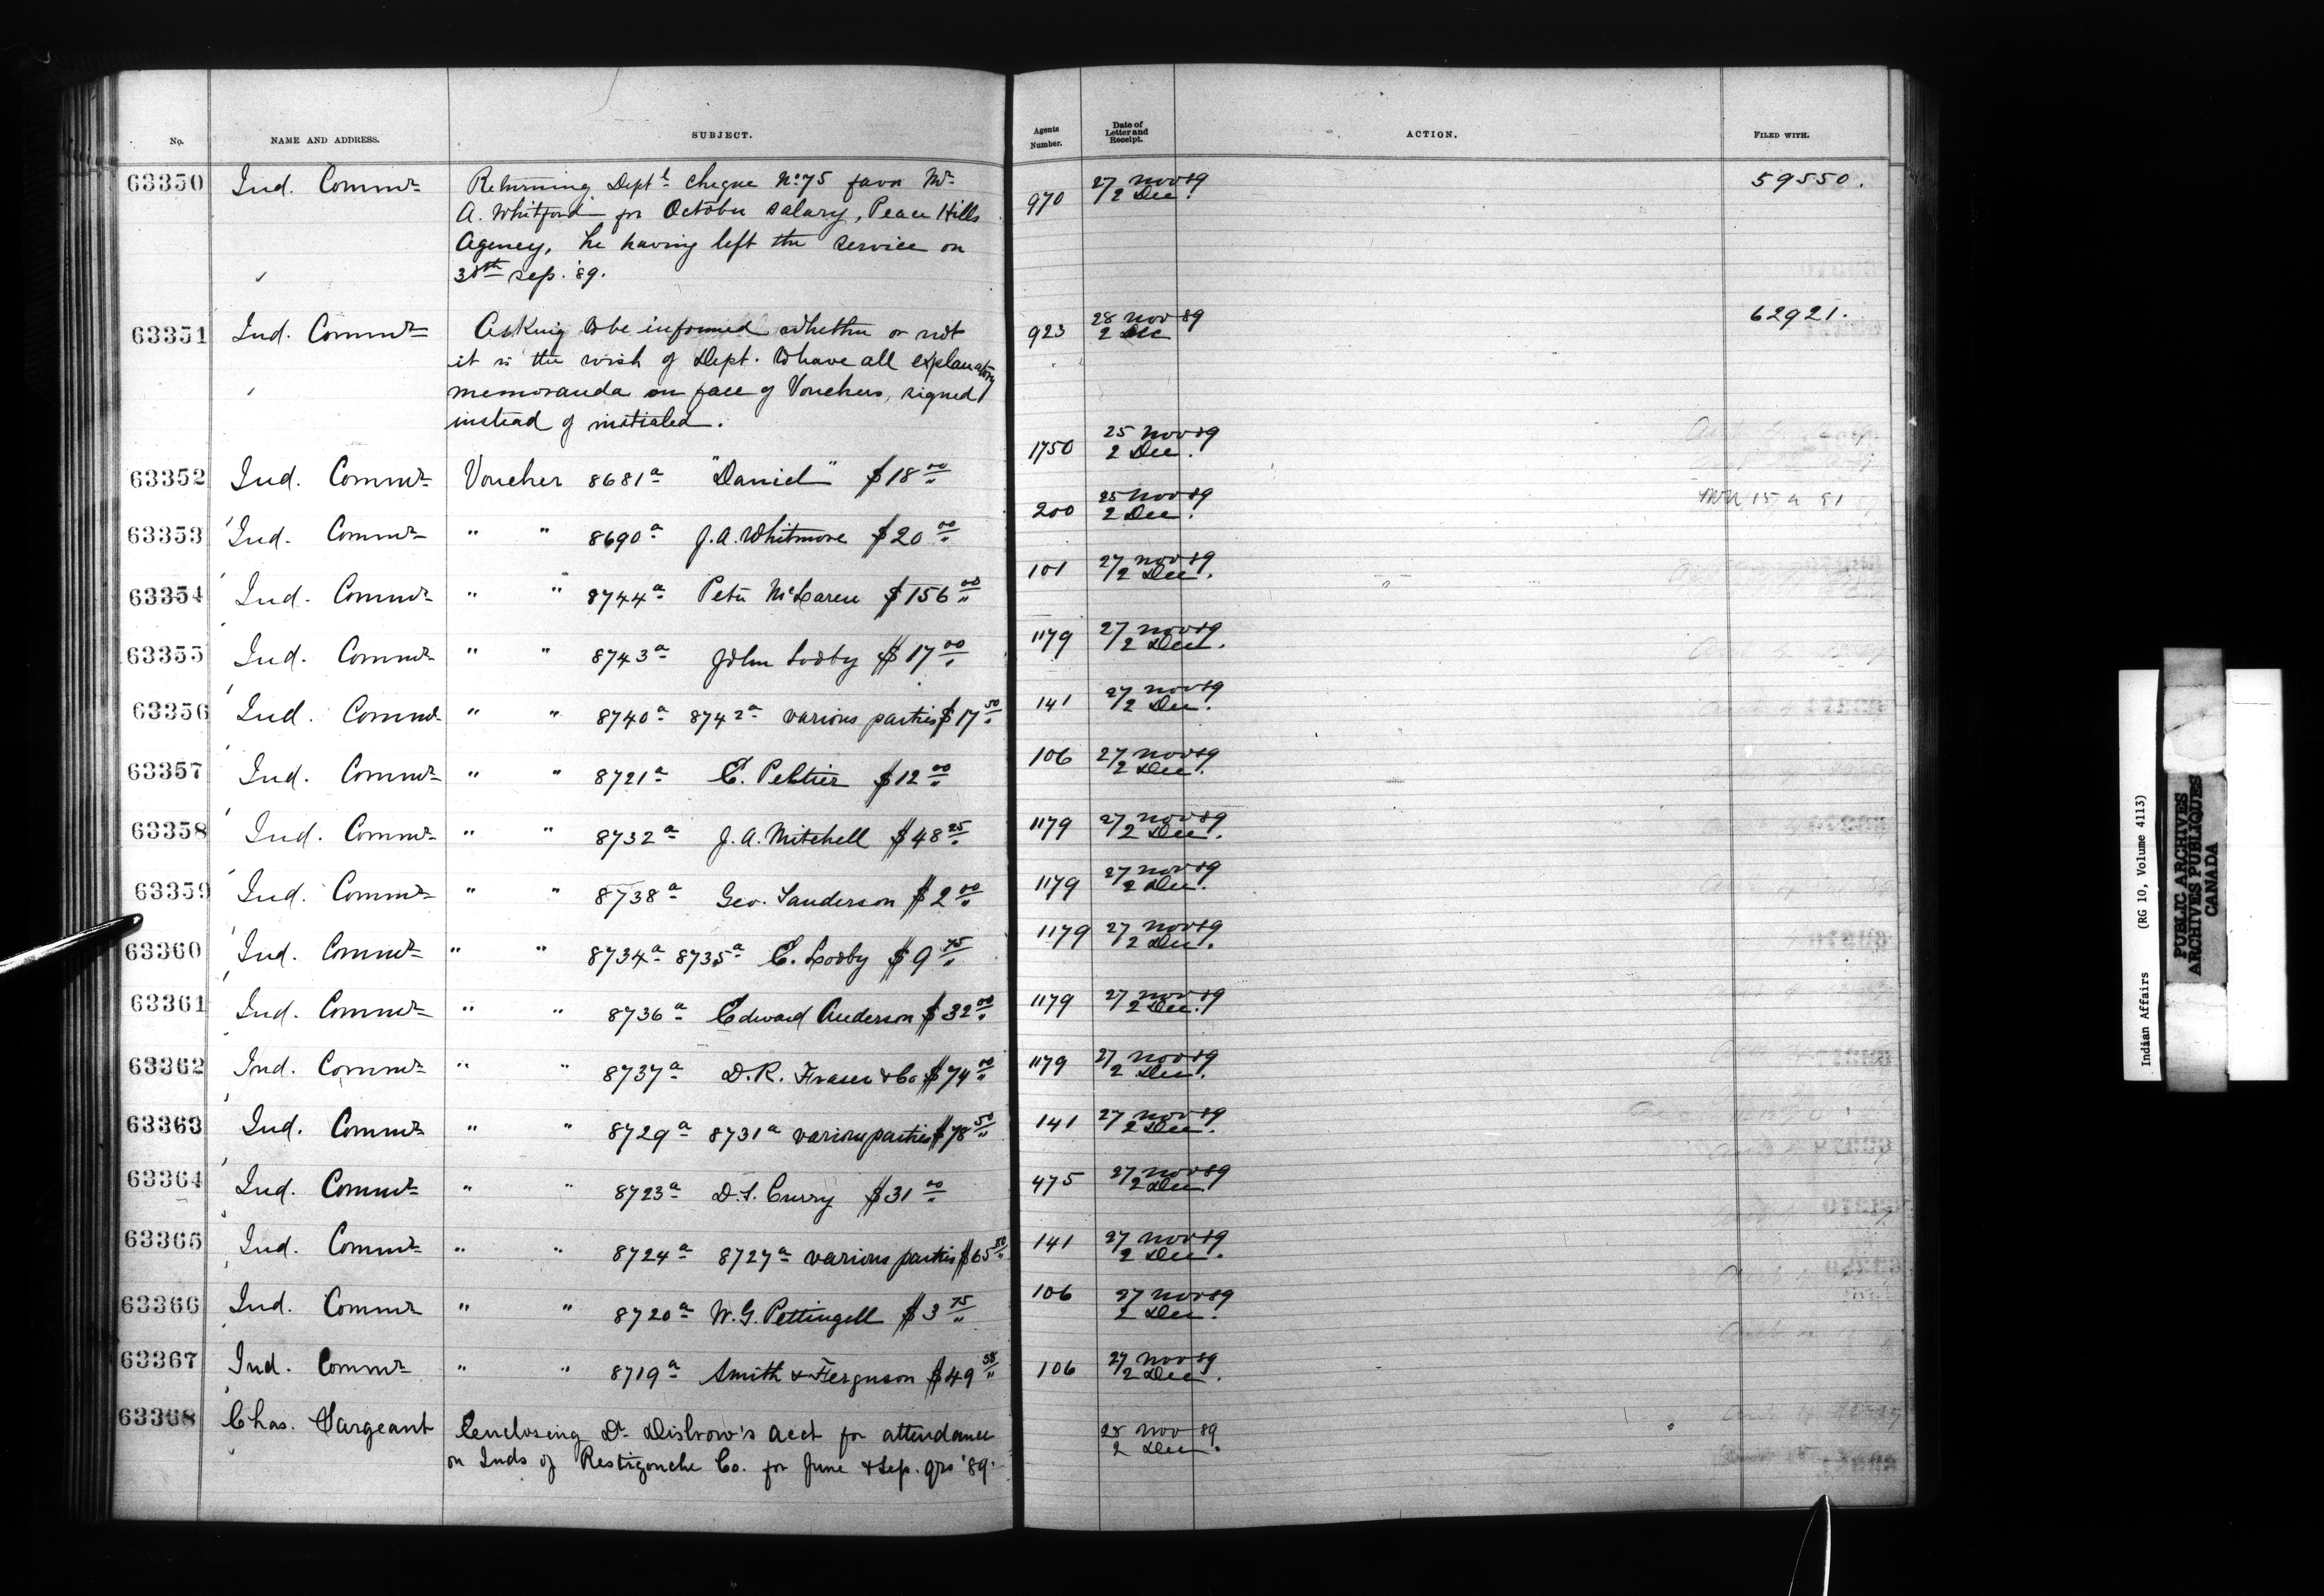 No. NAME AND ADDRESS. SUBJECT. Agents Number. Date of Letter and Receipt. ACTION. FILED WITH.
63350 Ind. Commr Returning Deptl cheque No 75 favor Mr 970 27 Nov 89 59550.
A. Whitford for October salary, Peace Hills 2 Dec.
Agency, he having left the service on
30th Sep. '89.
63351 Ind. Commr Asking to be informed whether or not 923 28 Nov 89 62921.
it is the wish of Dept. to have all explanatory 2 Dec
memoranda on face of Vouchers, signed
instead of initialed.
63352 Ind. Commr Voucher 8681a "Daniel" $18 00 1750 25 Nov 89 2 Dec.
63353 Ind. Commr " " 8690a J. A. Whitmore $20 00 200 25 Nov 89 2 Dec.
63354 Ind. Commr " " 8744a Peter McLaren $156 00 101 27 Nov 89 2 Dec.
63355 Ind. Commr " " 8743a John Looby $17 00 1179 27 Nov 89 2 Dec.
63356 Ind. Commr " " 8740a 8742a various parties $17 50 141 27 Nov 89 2 Dec.
63357 Ind. Commr " " 8721a C. Peltier $12 00 106 27 Nov 89 2 Dec.
63358 Ind. Commr " " 8732a J. A. Mitchell $48 25 1179 27 Nov 89 2 Dec.
63359 Ind. Commr " " 8738a Geo. Sanderson $2 00 1179 27 Nov 89 2 Dec.
63360 Ind. Commr " " 8734a 8735a C. Looby $9 75 1179 27 Nov 89 2 Dec.
63361 Ind. Commr " " 8736a Edward Anderson $32 00 1179 27 Nov 89 2 Dec.
63362 Ind. Commr " " 8737a D. R. Fraser & Co $74 00 1179 27 Nov 89 2 Dec.
63363 Ind. Commr " " 8729a 8731a various parties $78 50 141 27 Nov 89 2 Dec.
63364 Ind. Commr " " 8723a D. S. Curry $31 00 475 27 Nov 89 2 Dec.
63365 Ind. Commr " " 8724a 8727a various parties $65 50 141 27 Nov 89 2 Dec.
63366 Ind. Commr " " 8720a W. G. Pettingell $3 75 106 27 Nov 89 2 Dec.
63367 Ind. Commr " " 8719a Smith & Ferguson $49 58 106 27 Nov 89 2 Dec.
63368 Chas. Sargeant Enclosing Dr Disbrow's acct for attendance 28 Nov 89
on Inds of Restigouche Co. for June & Sep. qrs '89. 2 Dec.
Indian Affairs (RG 10, Volume 4113)
PUBLIC ARCHIVES
ARCHIVES PUBLIQUES
CANADA